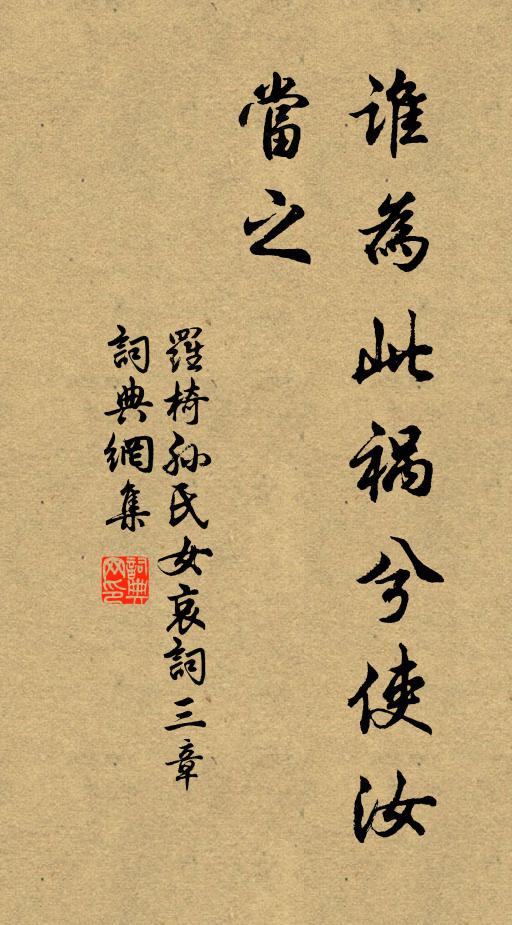 誰為此禍兮使汝
當之
羅椅孫氏女哀詞三章
詞典網集
詞典網印